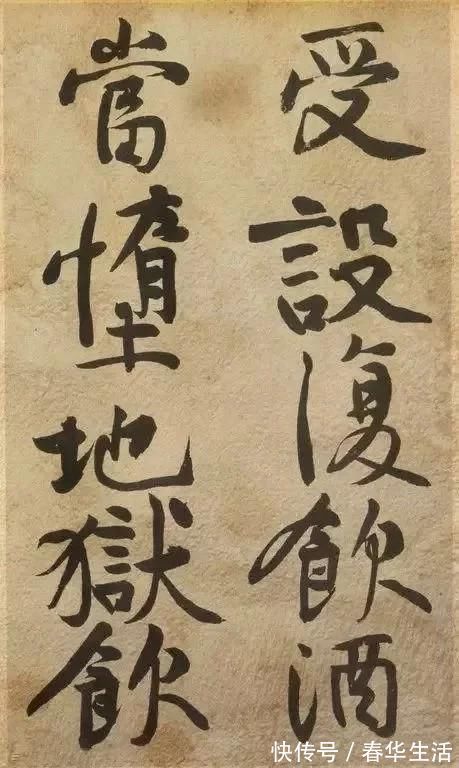 受設復飲酒
當墮地獄飲
快传号/春华生活